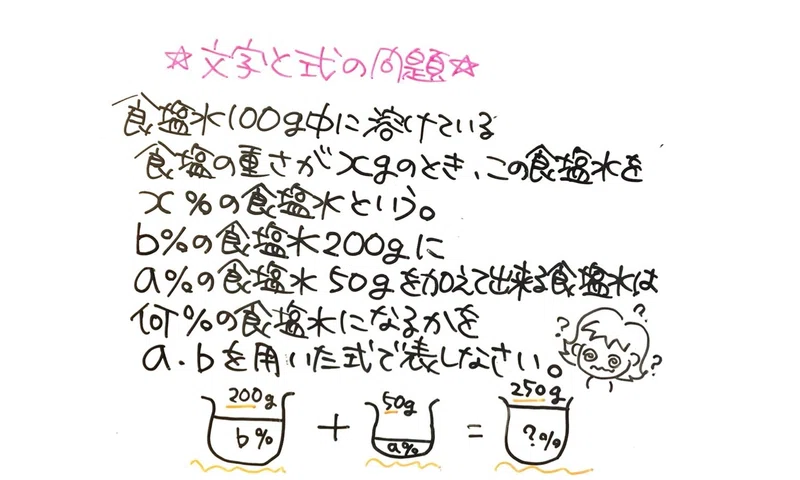 ☆文字と式の問題☆
食塩水100g中に溶けている
食塩の重さがxgのとき、この食塩水を
x%の食塩水という。
b%の食塩水200gに
a%の食塩水50gを加えて出来る食塩水は
何%の食塩水になるかを
a.bを用いた式で表しなさい。
? ? ?
200g 50g 250g
b% + a% = ?%